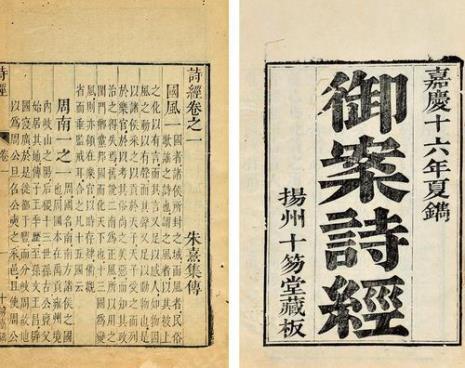 嘉慶十六年夏鐫
御案詩經
揚州十笏堂藏板
詩經卷之一
朱熹集傳
國風一 國者諸侯所封之域而風者民俗
歌謠之詩也謂之風者以其被上
之化以有言而其言又足以感人如物因
風之動以有聲而其聲又足以動物也是
以諸侯采之以貢於天子天子受之而列
於樂官於以考其俗尚之美惡而知其政
治之得失焉舊說二南為正風所以用之
閨門鄉黨邦國而化天下也十三國為變
風則亦領在樂官以時存肄備觀
省而垂監戒耳合之凡十五國云
周南一之一 周國名南南方諸侯之國
也周國本在禹貢雍州境
內岐山之陽后稷十三世孫古公亶父
始居其地傳子王季歷至孫文王昌辟
國寖廣於是徙都于豐而分岐周故地
以為周公旦召公奭之采邑且使周公
詩經
卷一